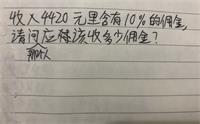 收入4420元里含有10%的佣金,
请问应该收多少佣金?